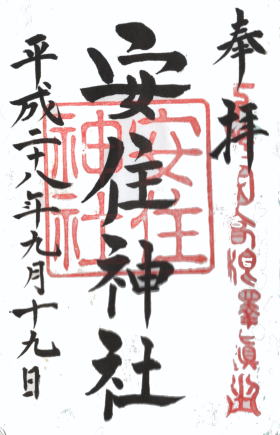 奉拝
安住神社
平成二十八年九月十九日
安住
神社